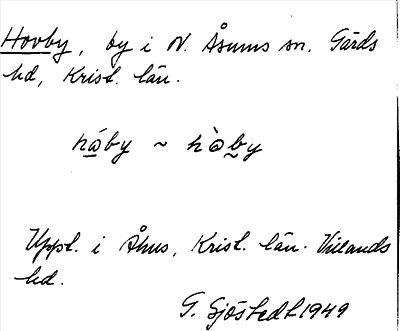 Hovby, by i N. Åsums sn. Gärds
hd, Krist. län.
háby ~ hòby
Uppt. i Åhus, Krist. län. Villands
hd.
G. Sjöstedt 1949